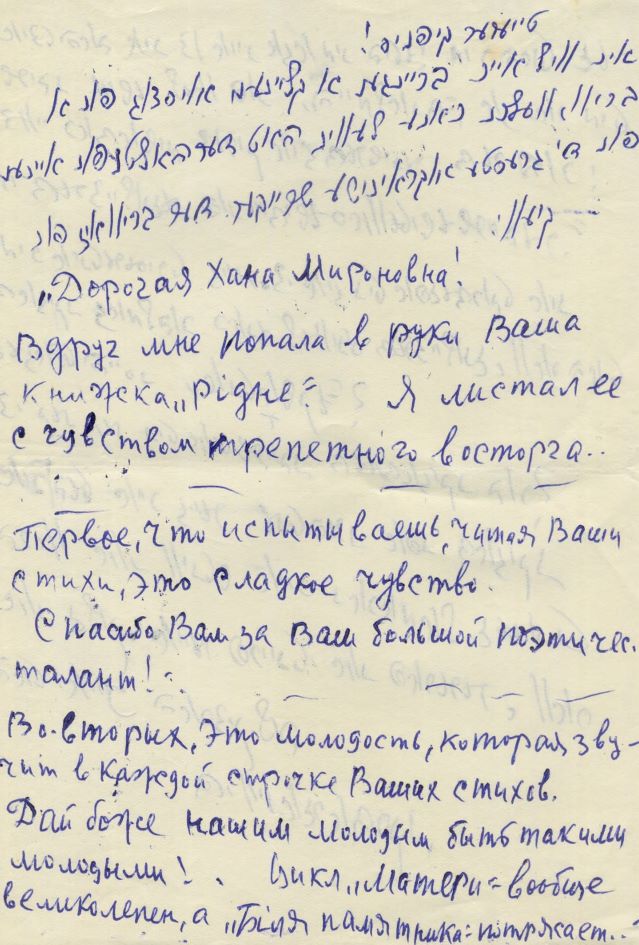 טייערער קיפניס!
איך וויל אייך ברענגען א קליינעם אויסצוג פון א
בריוו, וועלכן כאנע לעווין האט דערהאלטן פון איינעם
פון די גרעסטע אוקראינישע שרייבער. דער בריוו איז פון
קיעוו.
„Дорогая Хана Мироновна!
Вдруг мне попала в руки Ваша
книжка „Рідне“ Я листал ее
с чувством трепетного восторга..
Первое, что испытываешь, читая Ваши
стихи, это сладкое чувство.
Спасибо Вам за Ваш большой поэтичес.
талант!
Во-вторых, это молодость, которая зву-
чит в каждой строчке Ваших стихов.
Дай боже нашим молодым быть такими
молодыми!. Цикл „Матери“ вообще
великолепен, а „Біля памятника“ потрясает...